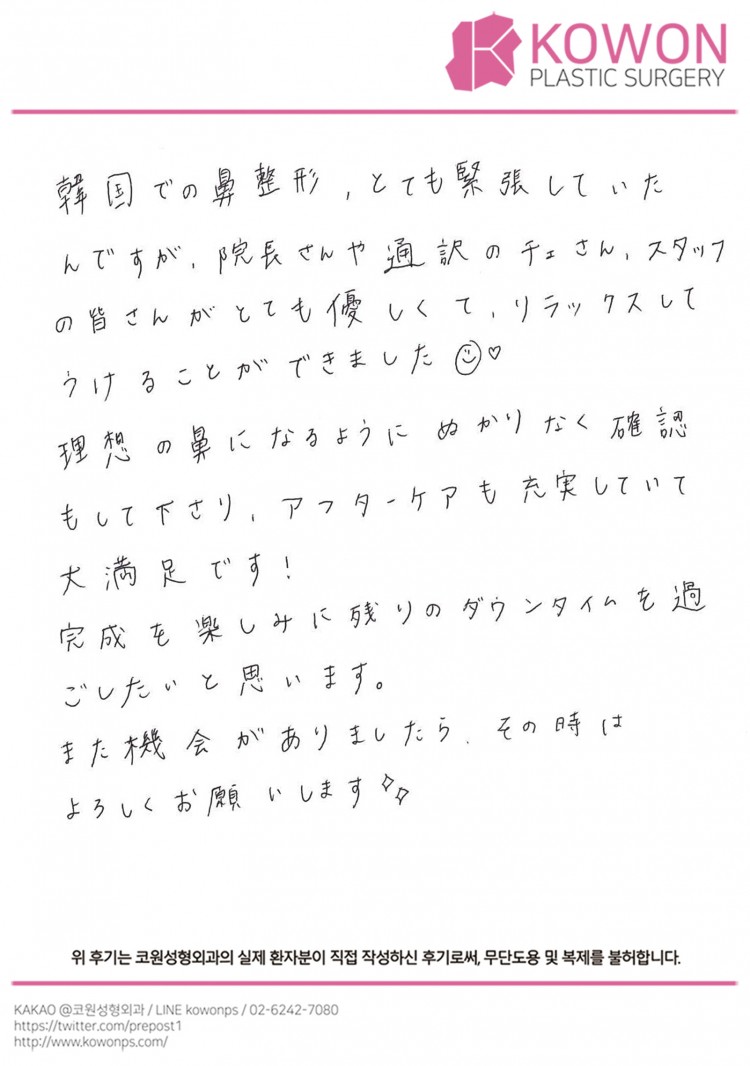 KOWON
PLASTIC SURGERY
韓国での鼻整形、とても緊張していた
んですが、院長さんや通訳のチェさん、スタッフ
の皆さんがとても優しくて、リラックスして
うけることができました
理想の鼻になるように ぬかりなく確認
もして下さり、アフターケアも充実していて
大満足です!
完成を楽しみに残りのダウンタイムを過
ごしたいと思います。
また機会がありましたら、その時は
よろしくお願いします
위 후기는 코원성형외과의 실제 환자분이 직접 작성하신 후기로써, 무단도용 및 복제를 불허합니다.
KAKAO @코원성형외과 / LINE kowonps / 02-6242-7080
https://twitter.com/prepost1
http://www.kowonps.com/